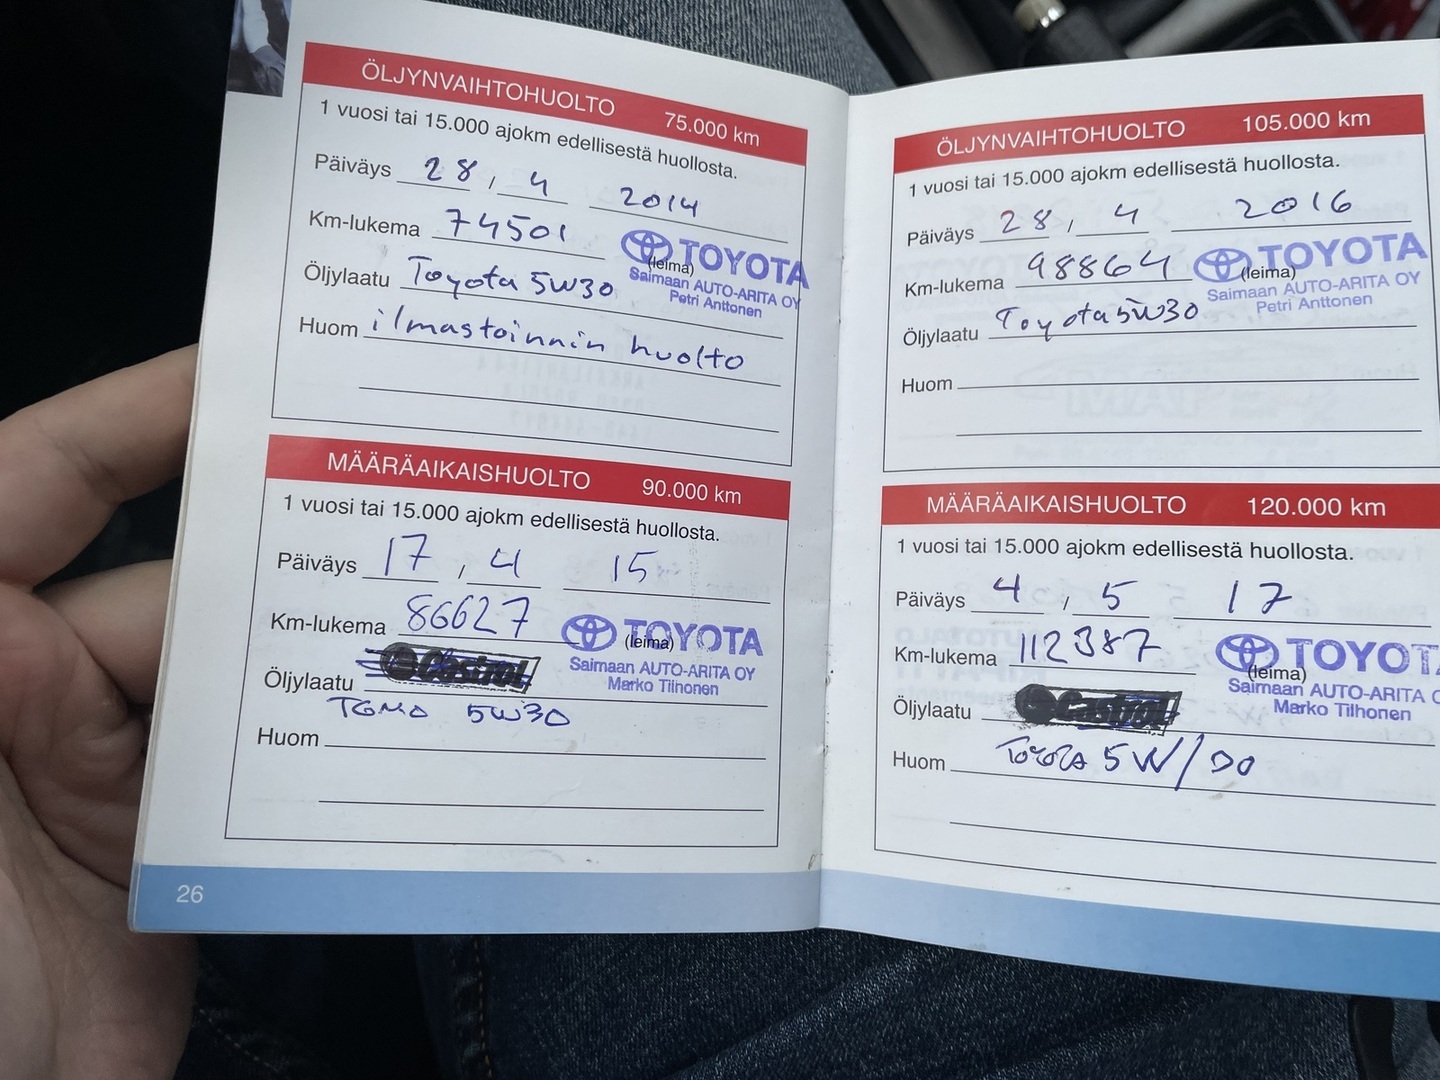 ÖLJYNVAIHTOHUOLTO 75.000 km
1 vuosi tai 15.000 ajokm edellisestä huollosta.
Päiväys 28, 4 2014
Km-lukema 74501
TOYOTA
(leima)
Saimaan AUTO-ARITA OY
Petri Anttonen
Öljylaatu Toyota 5W30
Huom ilmastoinnin huolto
MÄÄRÄAIKAISHUOLTO 90.000 km
1 vuosi tai 15.000 ajokm edellisestä huollosta.
Päiväys 17, 4 15
Km-lukema 86627
TOYOTA
(leima)
Saimaan AUTO-ARITA OY
Marko Tilhonen
Öljylaatu Castrol
TGMO 5W30
Huom
26
ÖLJYNVAIHTOHUOLTO 105.000 km
1 vuosi tai 15.000 ajokm edellisestä huollosta.
Päiväys 28, 4 2016
Km-lukema 98864
TOYOTA
(leima)
Saimaan AUTO-ARITA OY
Petri Anttonen
Öljylaatu Toyota 5W30
Huom
MÄÄRÄAIKAISHUOLTO 120.000 km
1 vuosi tai 15.000 ajokm edellisestä huollosta.
Päiväys 4, 5 17
Km-lukema 112387
TOYOTA
(leima)
Saimaan AUTO-ARITA O
Marko Tilhonen
Öljylaatu Castrol
Huom Toyota 5W/30